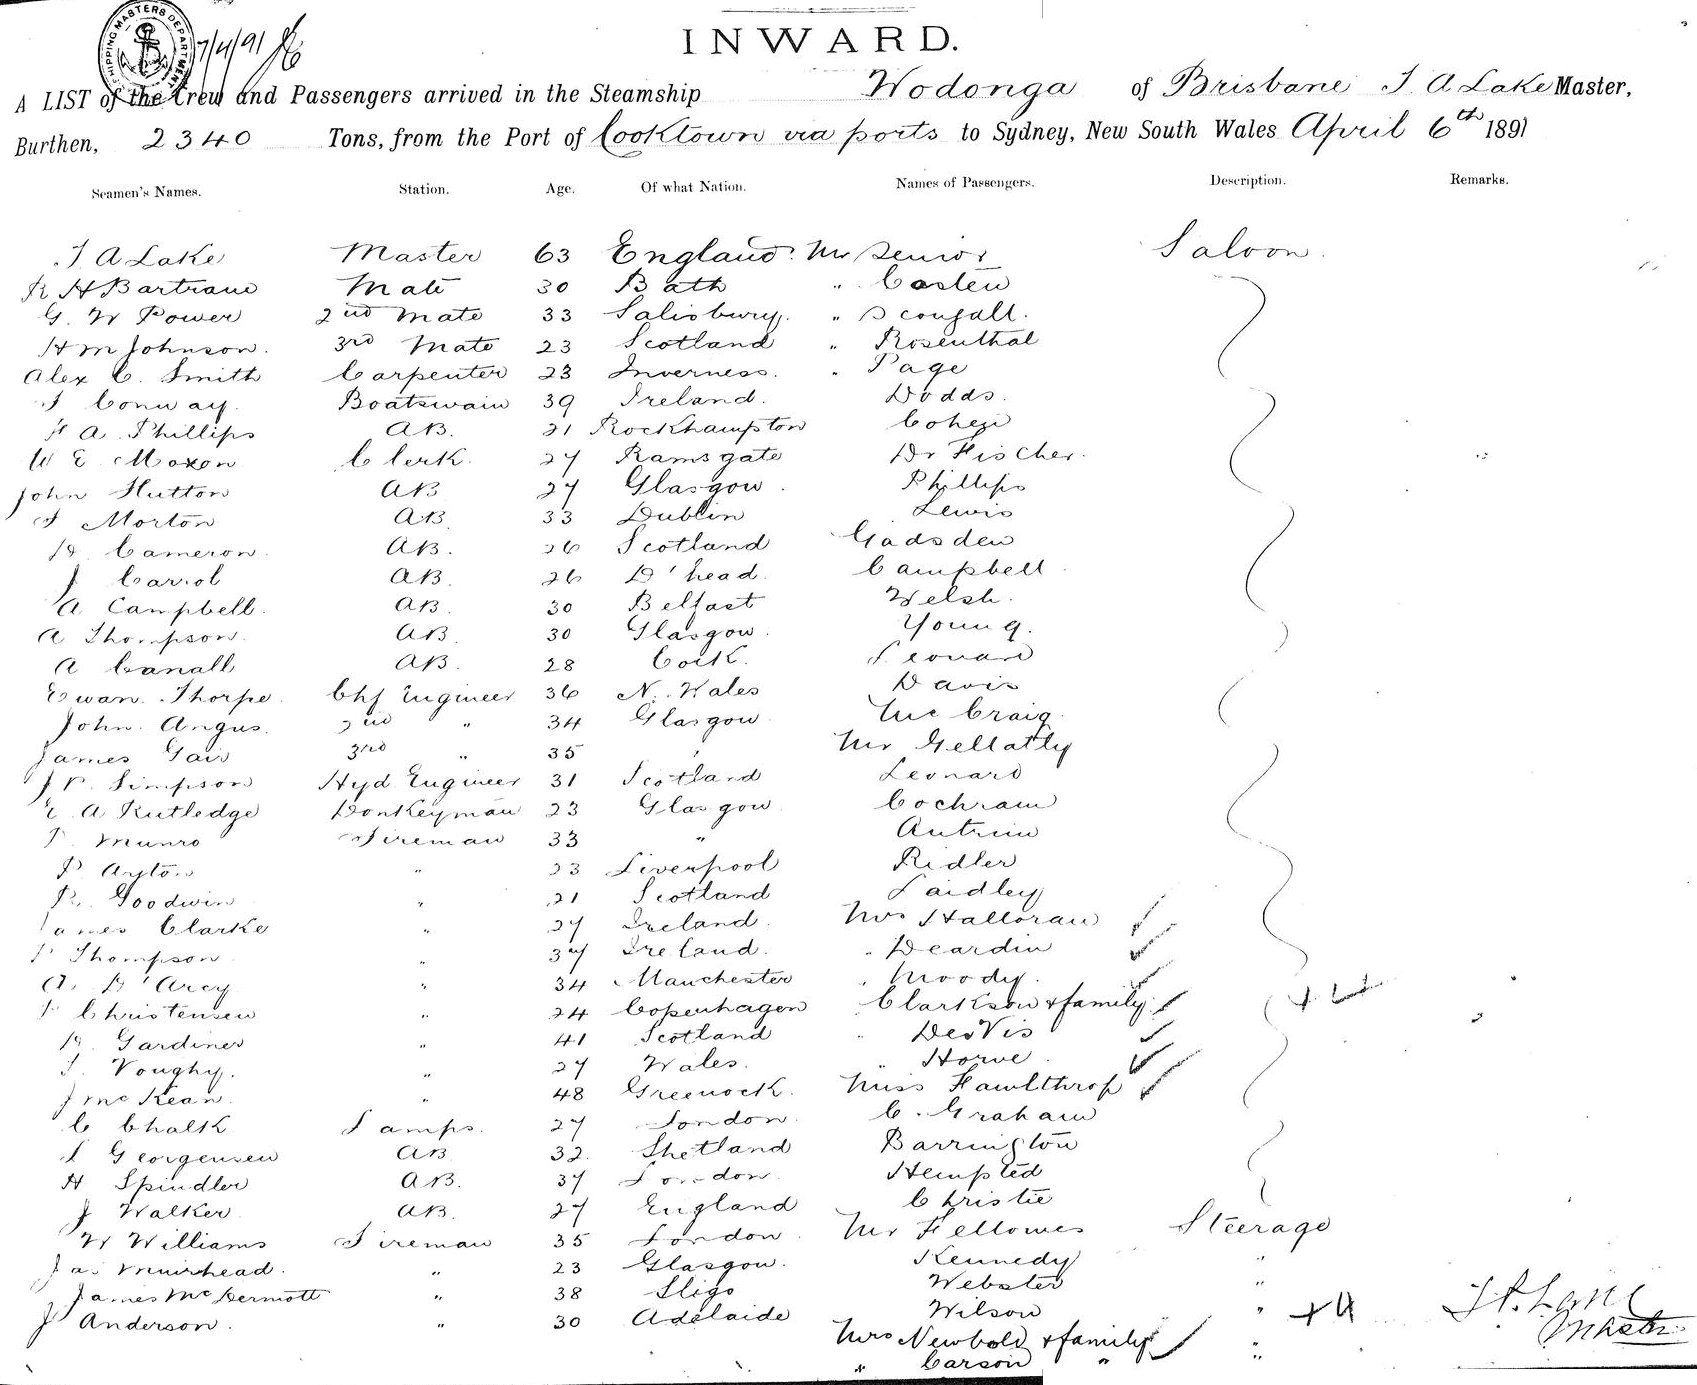 SHIPPING MASTERS DEPARTMENT
7/4/91
INWARD.
A LIST of the Crew and Passengers arrived in the Steamship Wodonga of Brisbane T A Lake Master,
Burthen, 2340 Tons, from the Port of Cooktown via ports to Sydney, New South Wales April 6th 1891
Seamen's Names. Station. Age. Of what Nation. Names of Passengers. Description. Remarks.
T A Lake Master 63 England Mr Senior Saloon
R H Bartram Mate 30 Bath " Casten
G. W Power 2nd Mate 33 Salisbury. " Scougall.
H M Johnson. 3rd Mate 23 Scotland " Rosenthal
Alex C. Smith Carpenter 23 Inverness. " Page
Conway. Boatswain 39 Ireland. Dodds.
A. Phillips AB. 21 Rockhampton Cohen
W E Moxon Clerk. 27 Ramsgate Dr Fischer.
John Hutton AB 27 Glasgow. Phillips
Morton AB. 33 Dublin Lewis
Cameron. AB. 26 Scotland Gadsden
J Carrol AB. 26 D'head. Campbell
A Campbell. AB. 30 Belfast Welsh.
A Thompson. AB. 30 Glasgow. Young.
A Canall AB. 28 Cork. Leonard
Ewan Thorpe. Chf Engineer 36 N. Wales Davis
John Angus. 2nd " 34 Glasgow McCraig
James Gair 3rd " 35 " Mr Gellatly
J P. Simpson Hyd Engineer 31 Scotland Leonard
A Rutledge Donkeyman 23 Glasgow Cochram
Munro Fireman 33 " Antrim
P Ayton " 23 Liverpool Ridler
R. Goodwin " 21 Scotland Laidley
James Clarke " 27 Ireland. Mrs Halloran
Thompson " 37 Ireland. " Deardin
A. D'Arcy " 34 Manchester " Moody.
Christensen " 24 Copenhagen Clarkson & family
Gardiner " 41 Scotland " DesVis
T. Voughy. " 27 Wales. " Horne
J McKean. " 48 Greenock. Miss Fawlthrop
C Chalk Lamps. 27 London. C. Graham
Georgensen AB 32. Shetland Barrington
H Spindler AB. 37 London. Hempsted
J Walker AB. 27 England Christie
W Williams Fireman 35 London. Mr Fellowes Steerage
Jas Muirhead. " 23 Glasgow. Kennedy "
James McDermott " 38 Sligo Webster "
J Anderson. " 30 Adelaide Wilson " +4
Mrs Newbold & family "
" Carson " "
Master